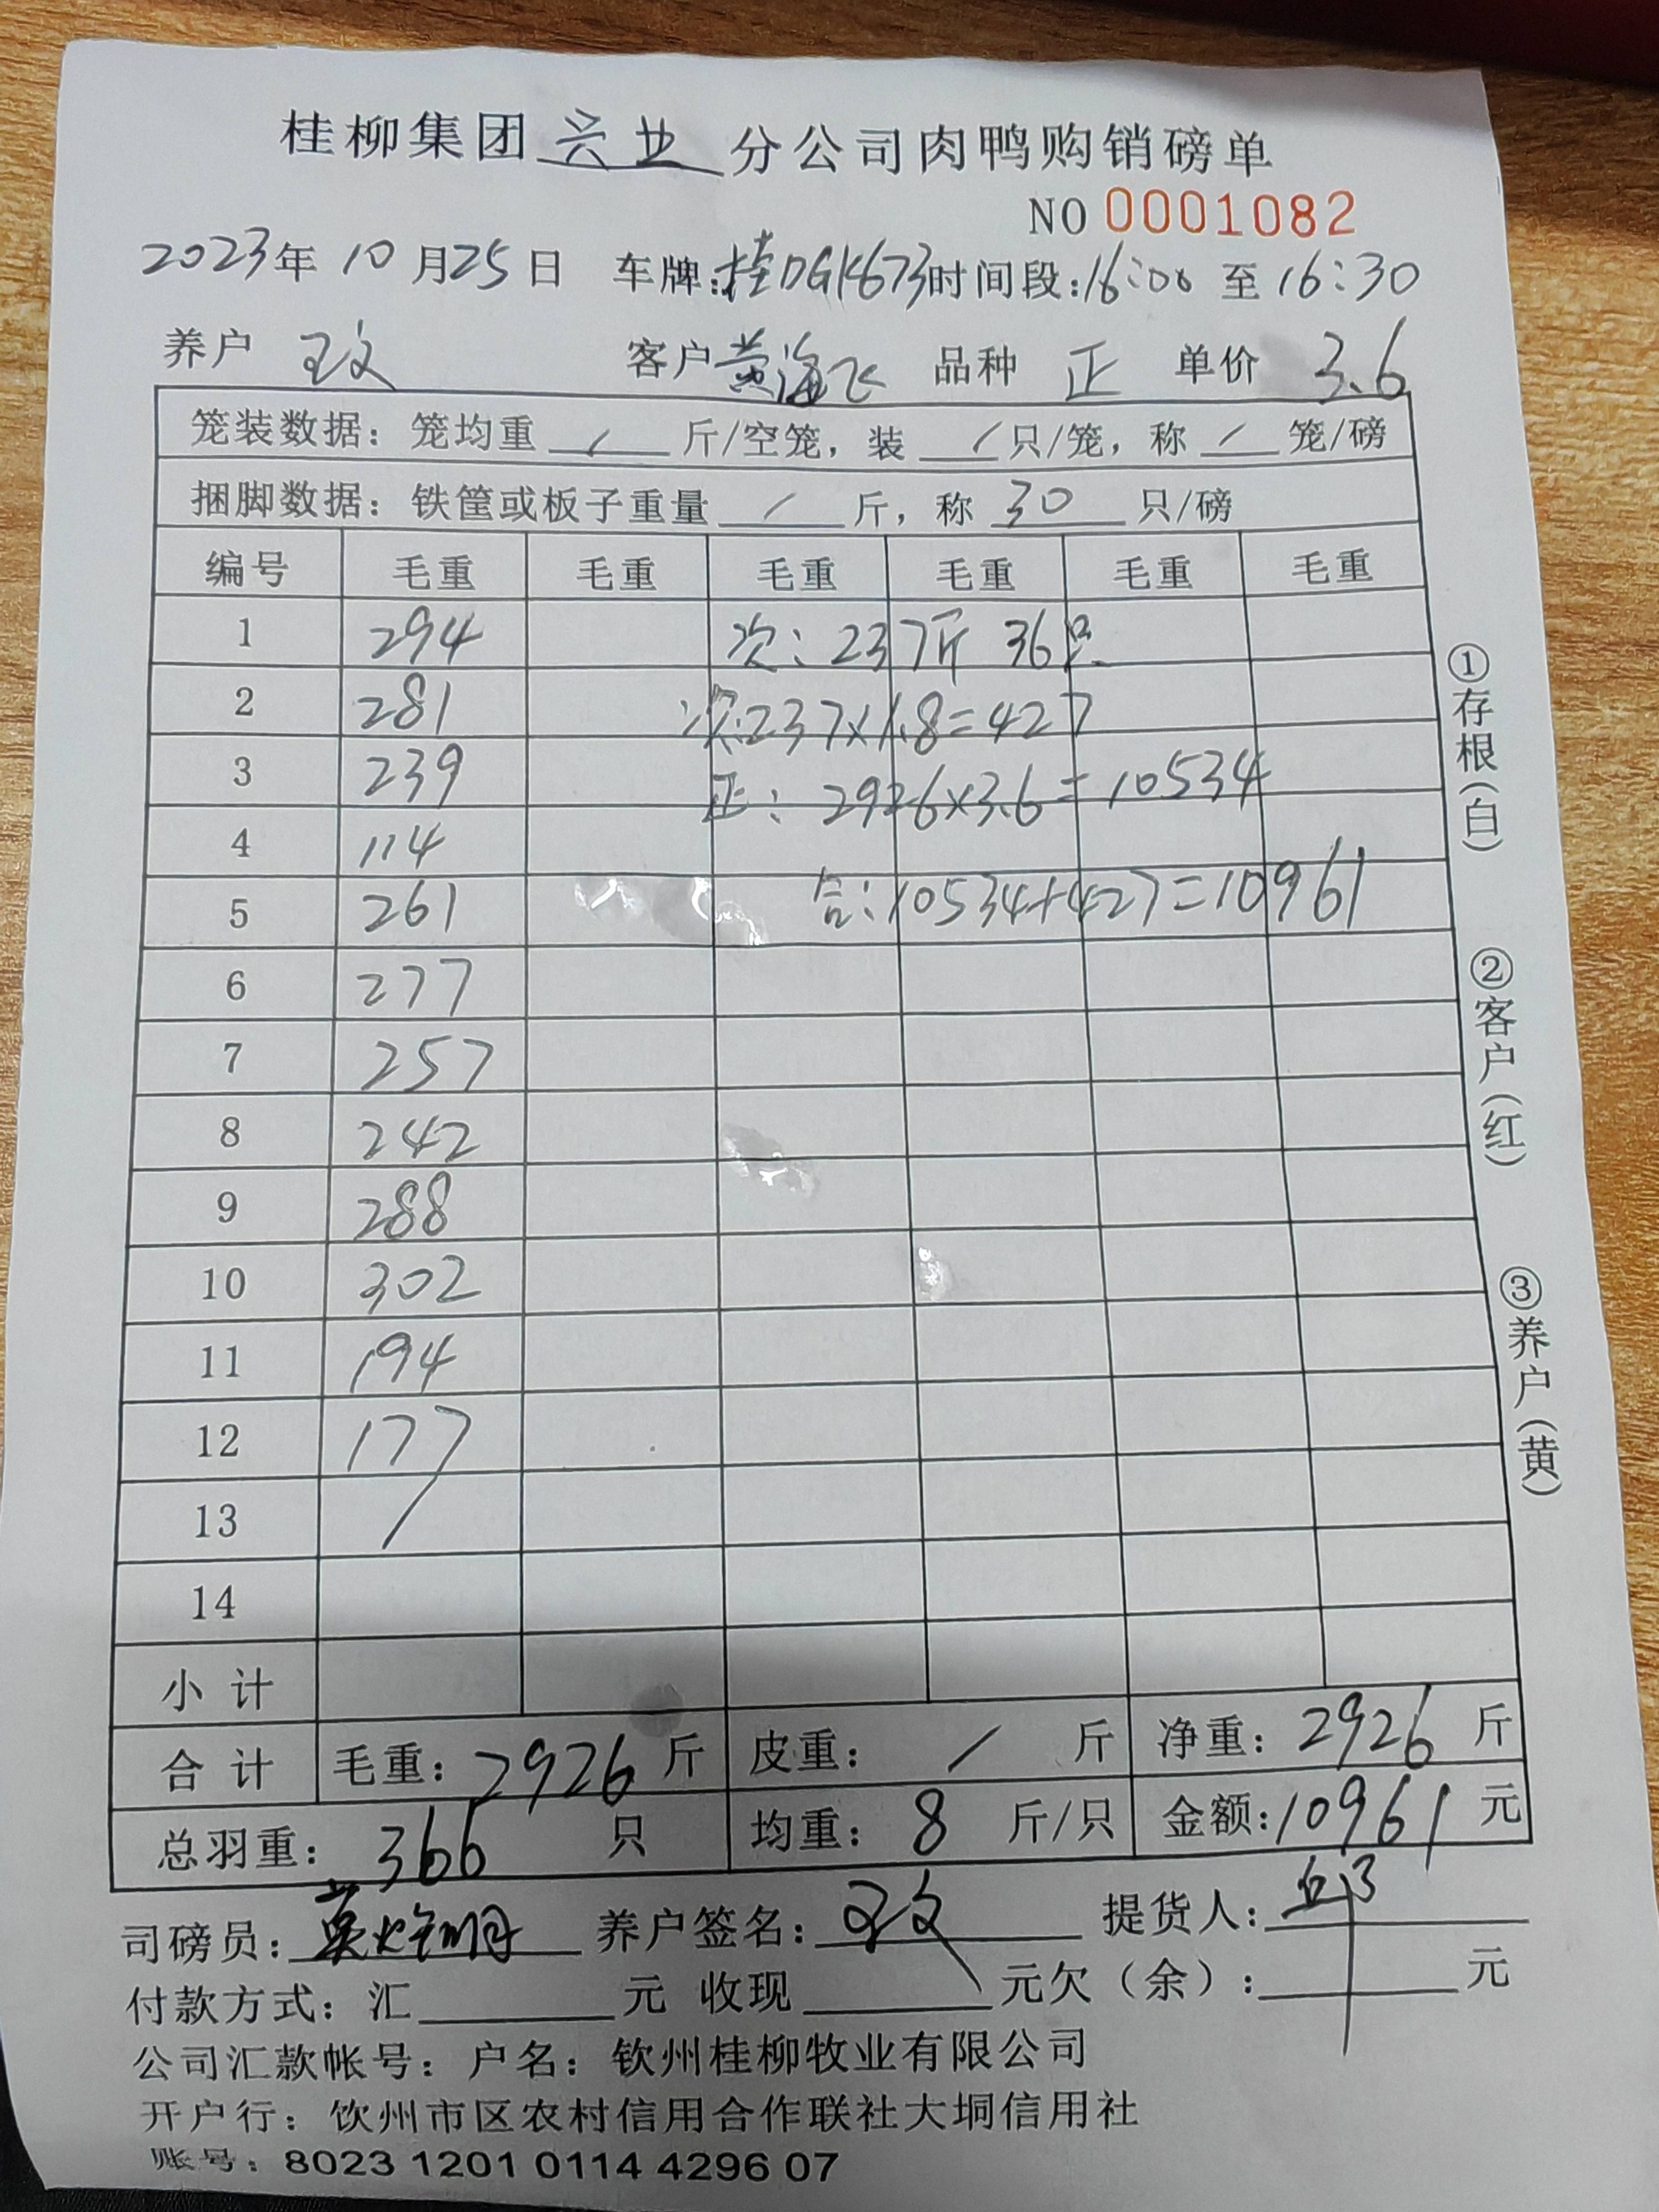 桂柳集团 兴业 分公司肉鸭购销磅单
NO 0001082
2023年 10 月25日 车牌:桂DGK673 时间段:16:00 至 16:30
养户 王文 客户 黄海飞 品种 正 单价 3.6
笼装数据：笼均重 / 斤/空笼，装 / 只/笼，称 / 笼/磅
捆脚数据：铁筐或板子重量 / 斤，称 30 只/磅
编号 毛重 毛重 毛重 毛重 毛重 毛重
1 294 次：237斤 36只
2 281 次:237×1.8=427
3 239 正：2926×3.6=10534
4 114
5 261 合:10534+427=10961
6 277
7 257
8 242
9 288
10 302
11 194
12 177
13 /
14
小 计
合 计 毛重：2926 斤 皮重： / 斤 净重：2926 斤
总羽重：366 只 均重：8 斤/只 金额:10961 元
司磅员： 养户签名：王文 提货人：
付款方式：汇 元 收现 元欠（余）： 元
公司汇款帐号：户名：钦州桂柳牧业有限公司
开户行：钦州市区农村信用合作联社大垌信用社
账号：8023 1201 0114 4296 07
①存根(白)
②客户(红)
③养户(黄)